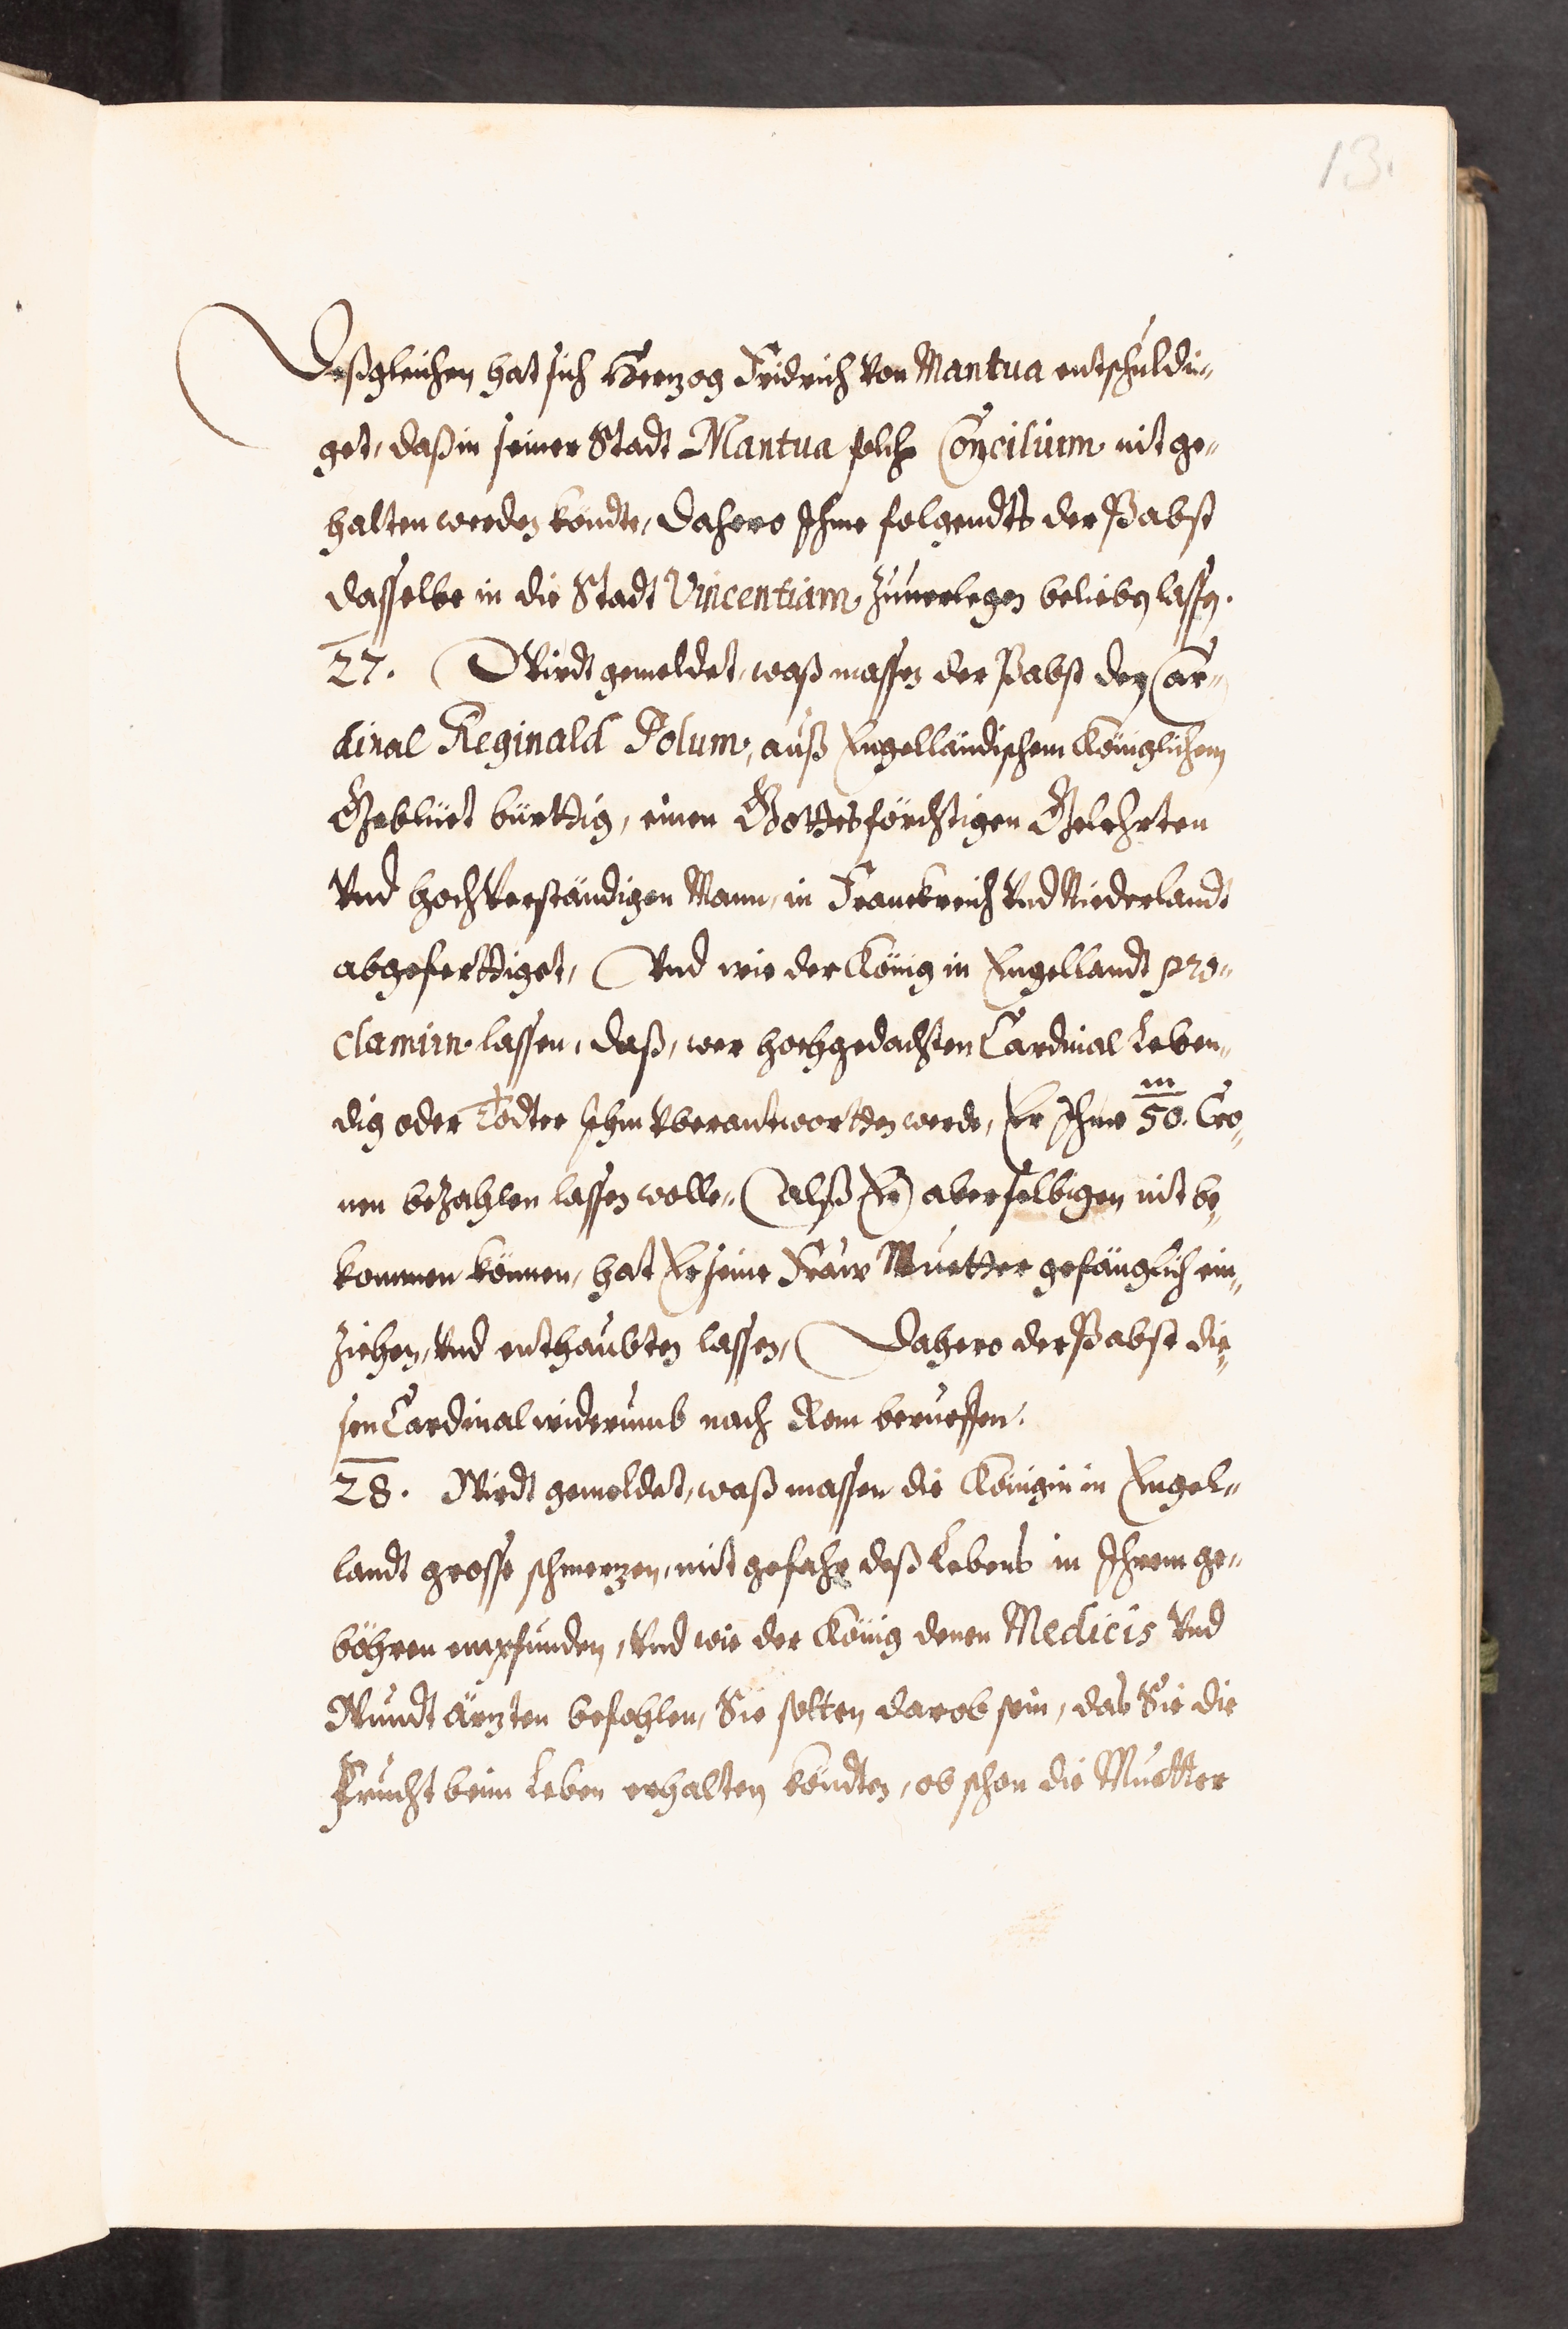 13.
Deßgleichen hat sich Herzog Fridrich von Mantua entschuldi-
get, daß in seiner Stadt Mantua solch Concilium nit ge-
halten werden köndte, dahero Ihme folgendts der Pabst
dasselbe in die Stadt Vincentiam zuuerlegen belieben lassen.
27. Wirdt gemeldet, waß massen der Pabst den Car-
dinal Reginald Polum, auß Engelländischem Königlichem
Geblüet bürttig, einen Gottesförchtigen Gelehrten
vnd hochverständigen Mann, in Franckreich vnd Niederlandt
abgeferttiget, Vnd wie der König in Engellandt pro-
clamirn lassen, daß, wer hochgedachten Cardinal Leben-
dig oder Todter Ihm vberantwortten werde, Er Ihme 50.m Cro-
nen bezahlen lassen wolle, Alß Er aber selbigen nit be-
kommen können, hat Er seine Fraw Muetter gefänglich ein-
ziehen, vnd enthaubten lassen, Dahero der Pabst die-
sen Cardinal widerumb nach Rom berueffen.
28. Wirdt gemeldet, waß massen die Königin in Engel-
landt grosse schmerzen, mit gefahr deß Lebens in Ihrem ge-
böhren empfunden, vnd wie der König denen Medicis vnd
Wundt Ärzten befohlen, Sie solten darob sein, das Sie die
Frucht beim Leben erhalten köndten, ob schon die Muetter